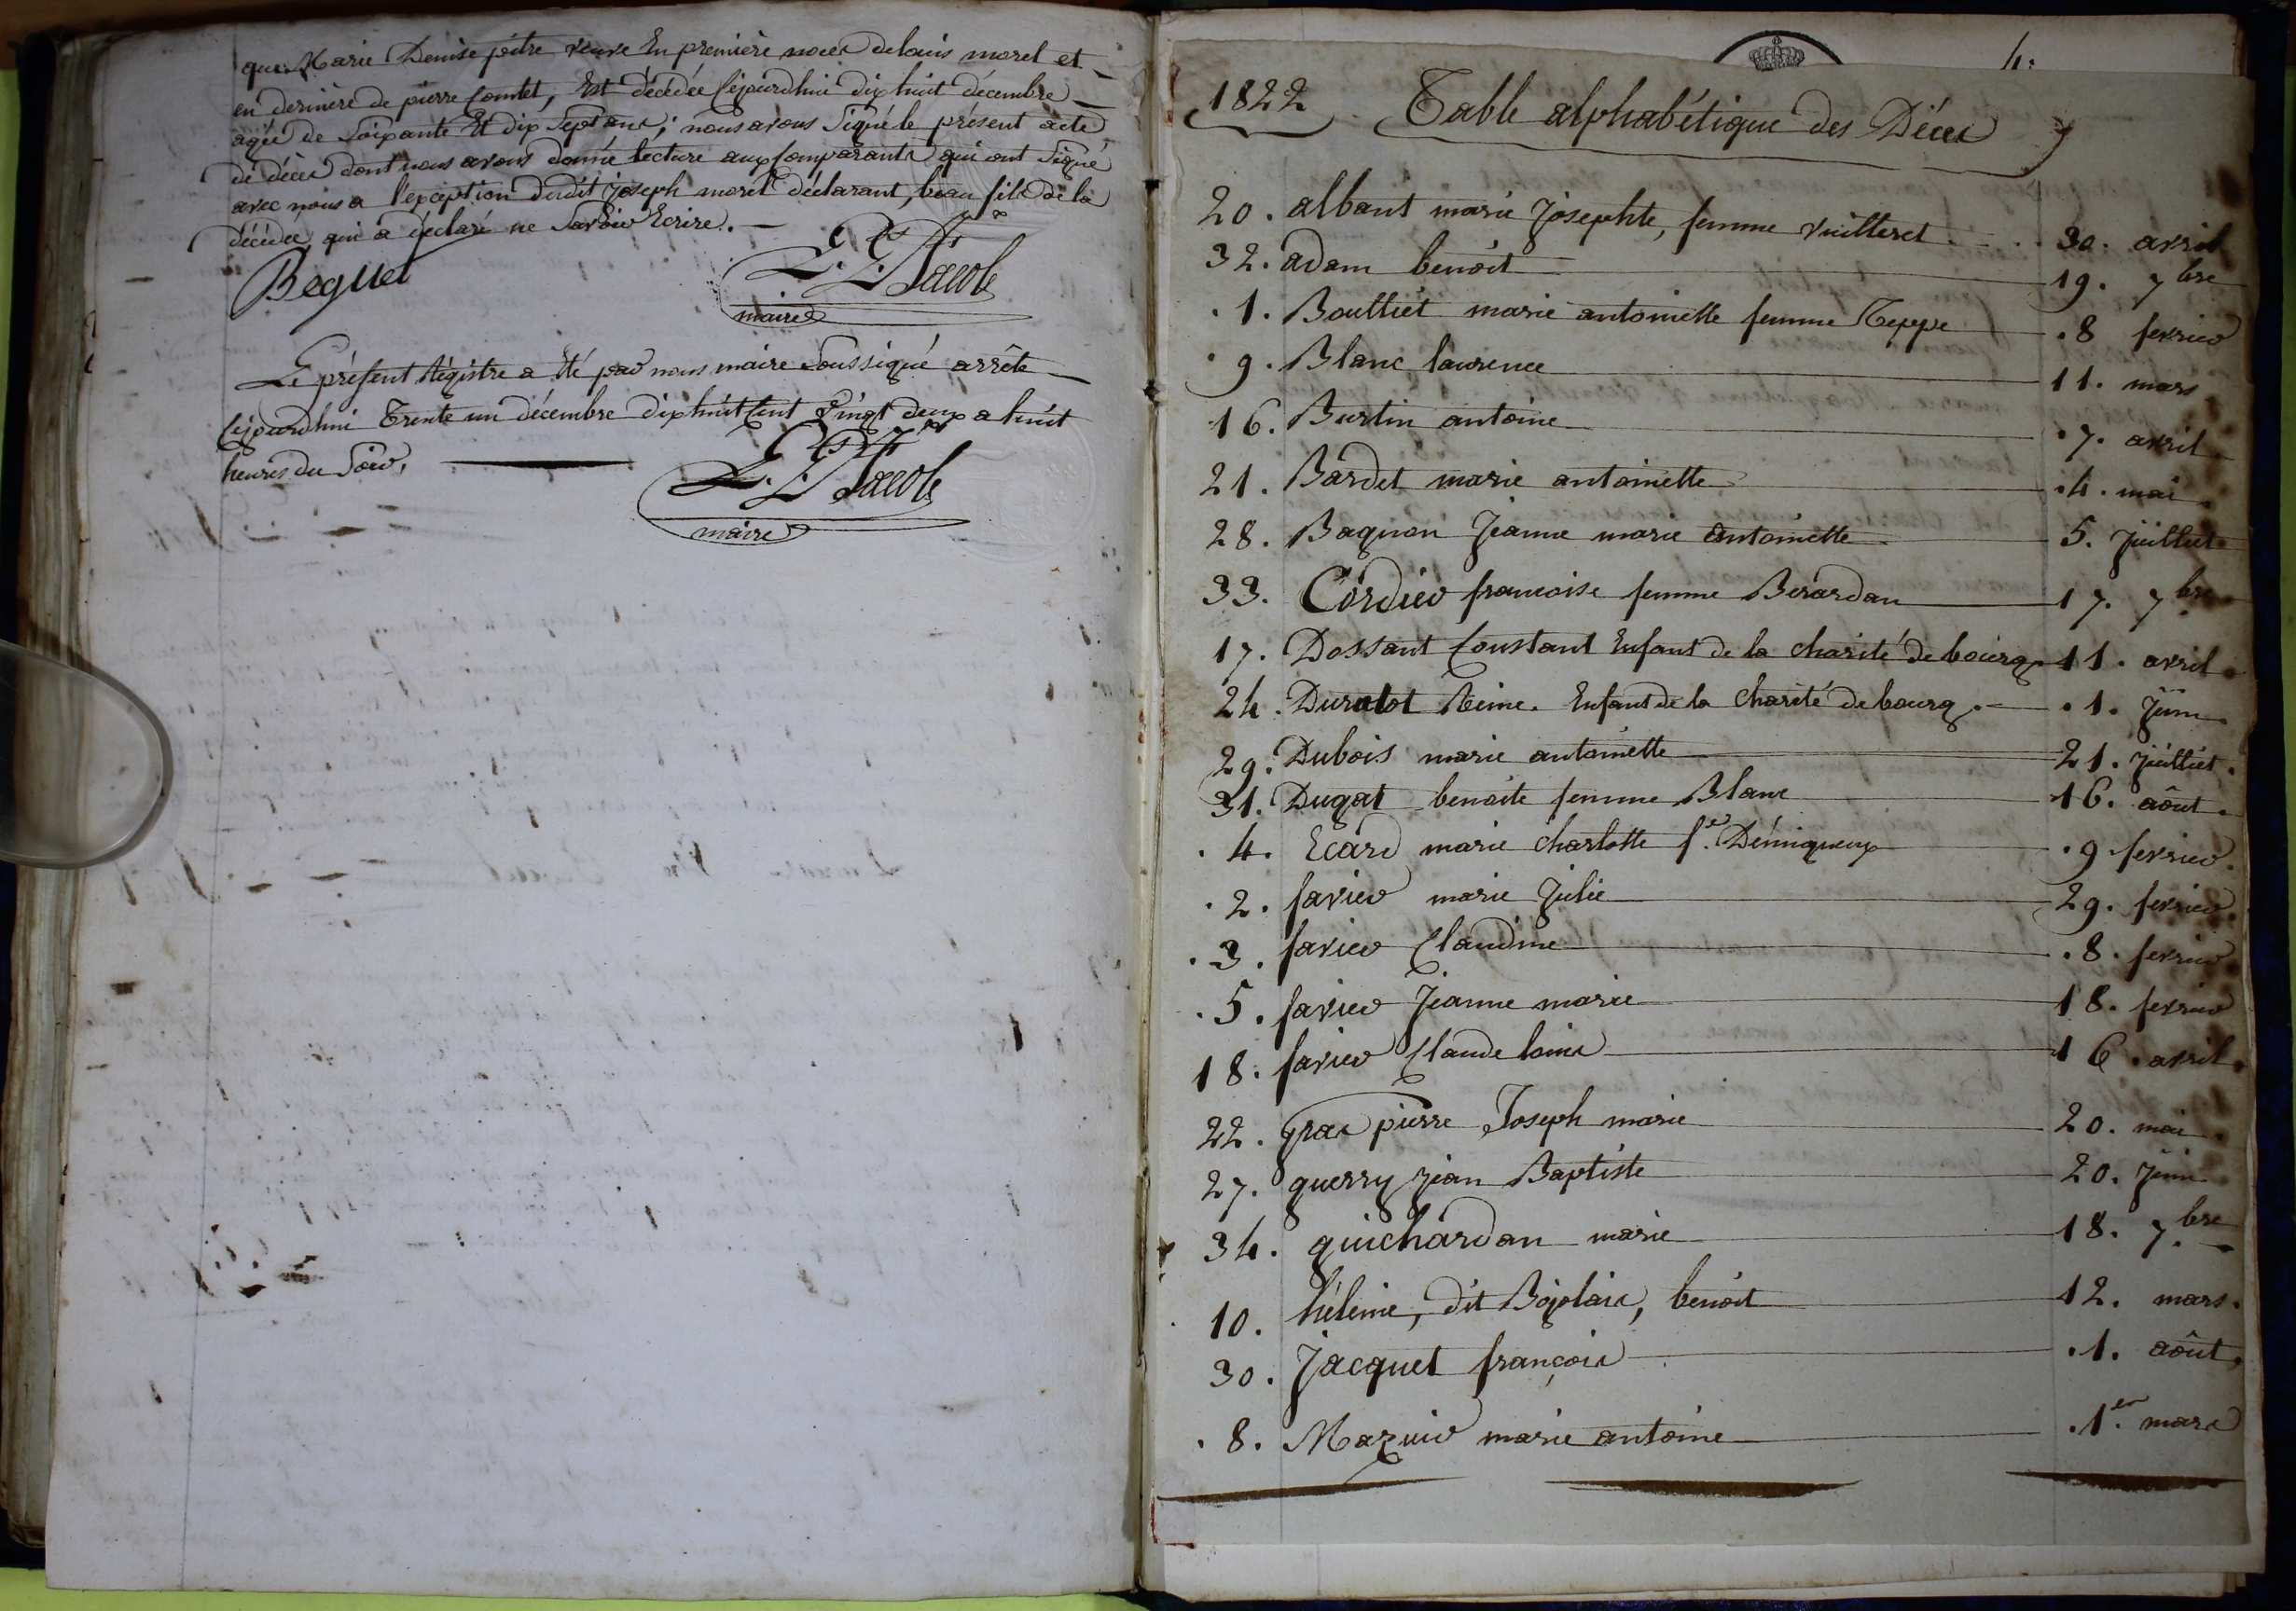 que Marie Denise pitre veuve En premiere noces de louis morel et
en derniere de pierre Comtet, Est décédée Cejourdhui dix huit décembre
agée de Soixante Et dix Sept ans; nous avons Signé le présent acte
de décès dont nous avons donné lecture aux Comparants qui ont Signé
avec nous a l'exception dudit joseph morel déclarant, beau fils de la
décédée qui a déclaré ne Savoir Ecrire.
Beguet
Jacob
maire
Le présent Régistre a été par nous maire Soussigné arrêté
Cejourdhui Trente un décembre dix huit Cent Vingt deux a huit
heures du Soir,
Jacob
maire
4.
1822 Table alphabétique des Décès
20. albant marie Josephte, femme vuilleret 30. avril
32. adam benoit 19. 7bre
.1. Boulliet marie antoinette femme Teppe .8 fevrier
.9. Blanc laurence 11. mars
16. Burtin antoine .7. avril
21. Bardet marie antoinette .4. mai
28. Bagnon Jeanne marie antoinette 5. Juillet
33. Cordier francoise femme Berardan 17. 7bre
17. Dossant Constant Enfant de la charité de bourg 11. avril
24. Duralot Reine. Enfant de la charité de bourg. .1. Juin
29. Dubois marie antoinette 21. Juillet.
31. Dugat benoite femme Blanc 16. aôut.
.4. Ecard marie charlotte fe. .9 fevrier.
.2. favier marie Julie 29. fevrier.
.3. favier Claudine .8. fevrier
.5. favier Jeanne marie 18. fevrier
18. favier Claude louis 16. avril.
22. gras pierre Joseph marie 20. mai
27. guerry jean Baptiste 20. Juin
34. guichardan marie 18. 7.bre
10. héleine, dit Bojolais, benoit 12. mars.
30. Jacquet françois .1. aôut,
.8. Mazuir marie antoine .1er. mars